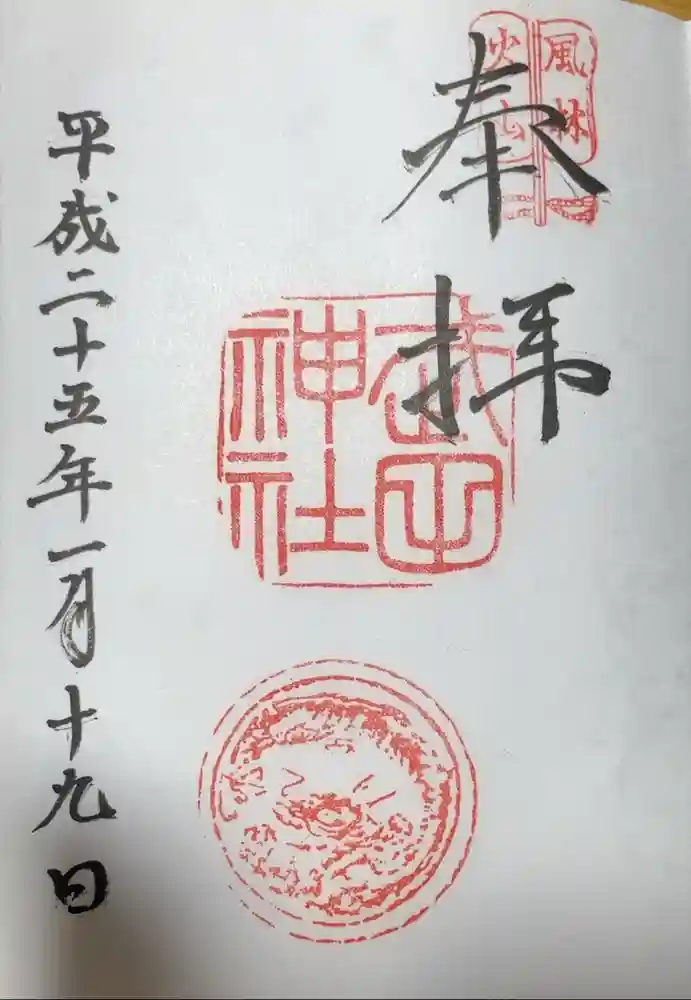 風林
火山
奉拝
武田
神社
平成二十五年一月十九日